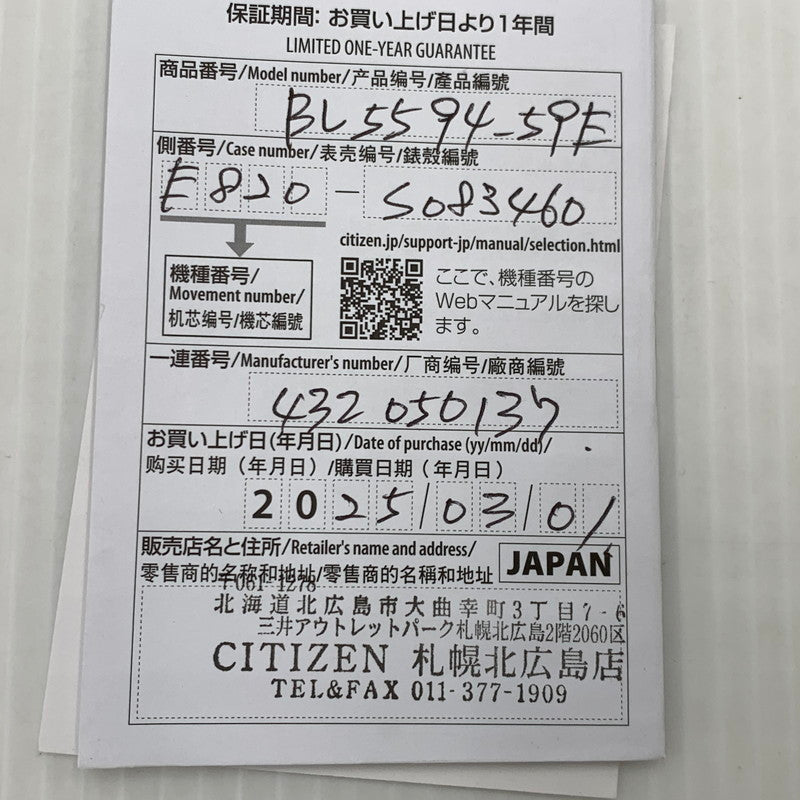 保証期間: お買い上げ日より1年間
LIMITED ONE-YEAR GUARANTEE
商品番号/Model number/产品编号/產品編號
BL5594-59E
側番号/Case number/表壳编号/錶殼編號
E820 - S083460
citizen.jp/support-jp/manual/selection.html
機種番号/
Movement number/
机芯编号/機芯編號
ここで、機種番号の
Webマニュアルを探し
ます。
一連番号/Manufacturer's number/厂商编号/廠商編號
432050137
お買い上げ日(年月日)/Date of purchase (yy/mm/dd)/
购买日期（年月日）/購買日期（年月日）
2025/03/01
販売店名と住所/Retailer's name and address/
零售商的名称和地址/零售商的名稱和地址
JAPAN
〒061-1278
北海道北広島市大曲幸町3丁目7-6
三井アウトレットパーク札幌北広島2階2060区
CITIZEN 札幌北広島店
TEL&FAX 011-377-1909